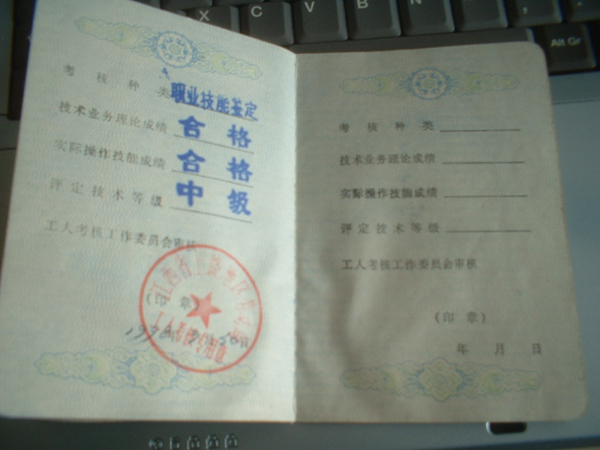 考核种类 职业技能鉴定
技术业务理论成绩 合格
实际操作技能成绩 合格
评定技术等级 中级
工人考核工作委员会审核
(印章)
考核种类
技术业务理论成绩
实际操作技能成绩
评定技术等级
工人考核工作委员会审核
(印章)
年 月 日
X C V B N M
Alt Gr